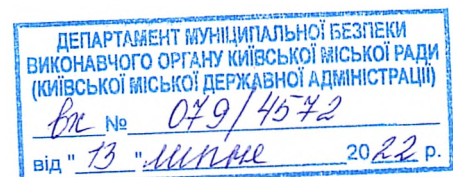 ДЕПАРТАМЕНТ МУНІЦИПАЛЬНОЇ БЕЗПЕКИ
ВИКОНАВЧОГО ОРГАНУ КИЇВСЬКОЇ МІСЬКОЇ РАДИ
(КИЇВСЬКОЇ МІСЬКОЇ ДЕРЖАВНОЇ АДМІНІСТРАЦІЇ)
вх № 079/4572
від "13" липня 2022 р.